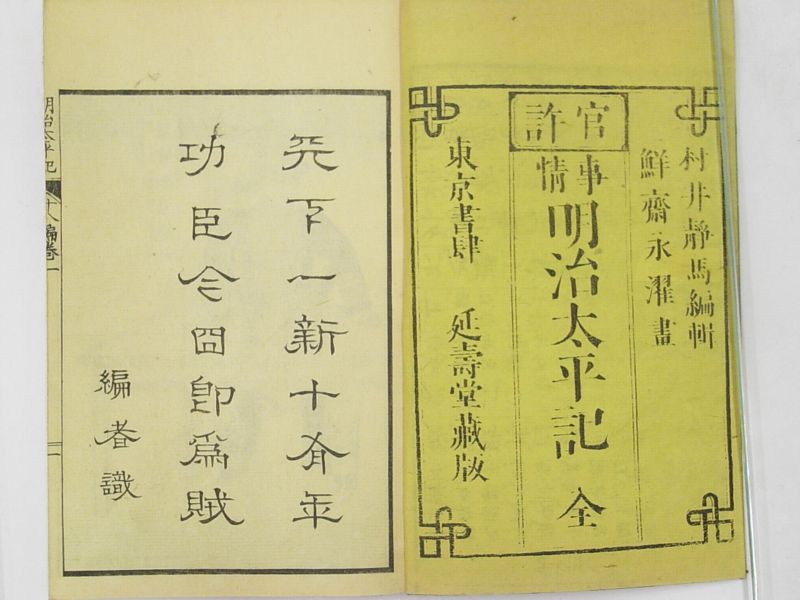 村井靜馬編輯
鮮齋永濯畫
官許
事情
明治太平記 全
東京書肆 延壽堂藏版
天下一新十有年
功臣今囬即為賊
編者識
明治太平記
十八編巻一